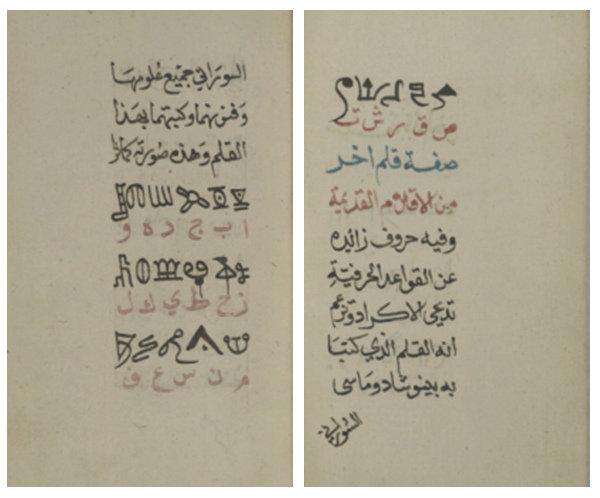 ص ق ر ش ت
صفة قلم اخر
من الاقلام القديمة
وفيه حروف زائده
عن القواعد الحرفية
تدعي الاكراد وتزعم
انه القلم الذي كتبا
به بينوشاد وماسى
السوراني
السوراني جميع علومهما
وفنونهما وكتبهما بهذا
القلم وهذه صورته كما ترا
ا ب ج د ه و
ز ح ط ي ك ل
م ن س ع ف